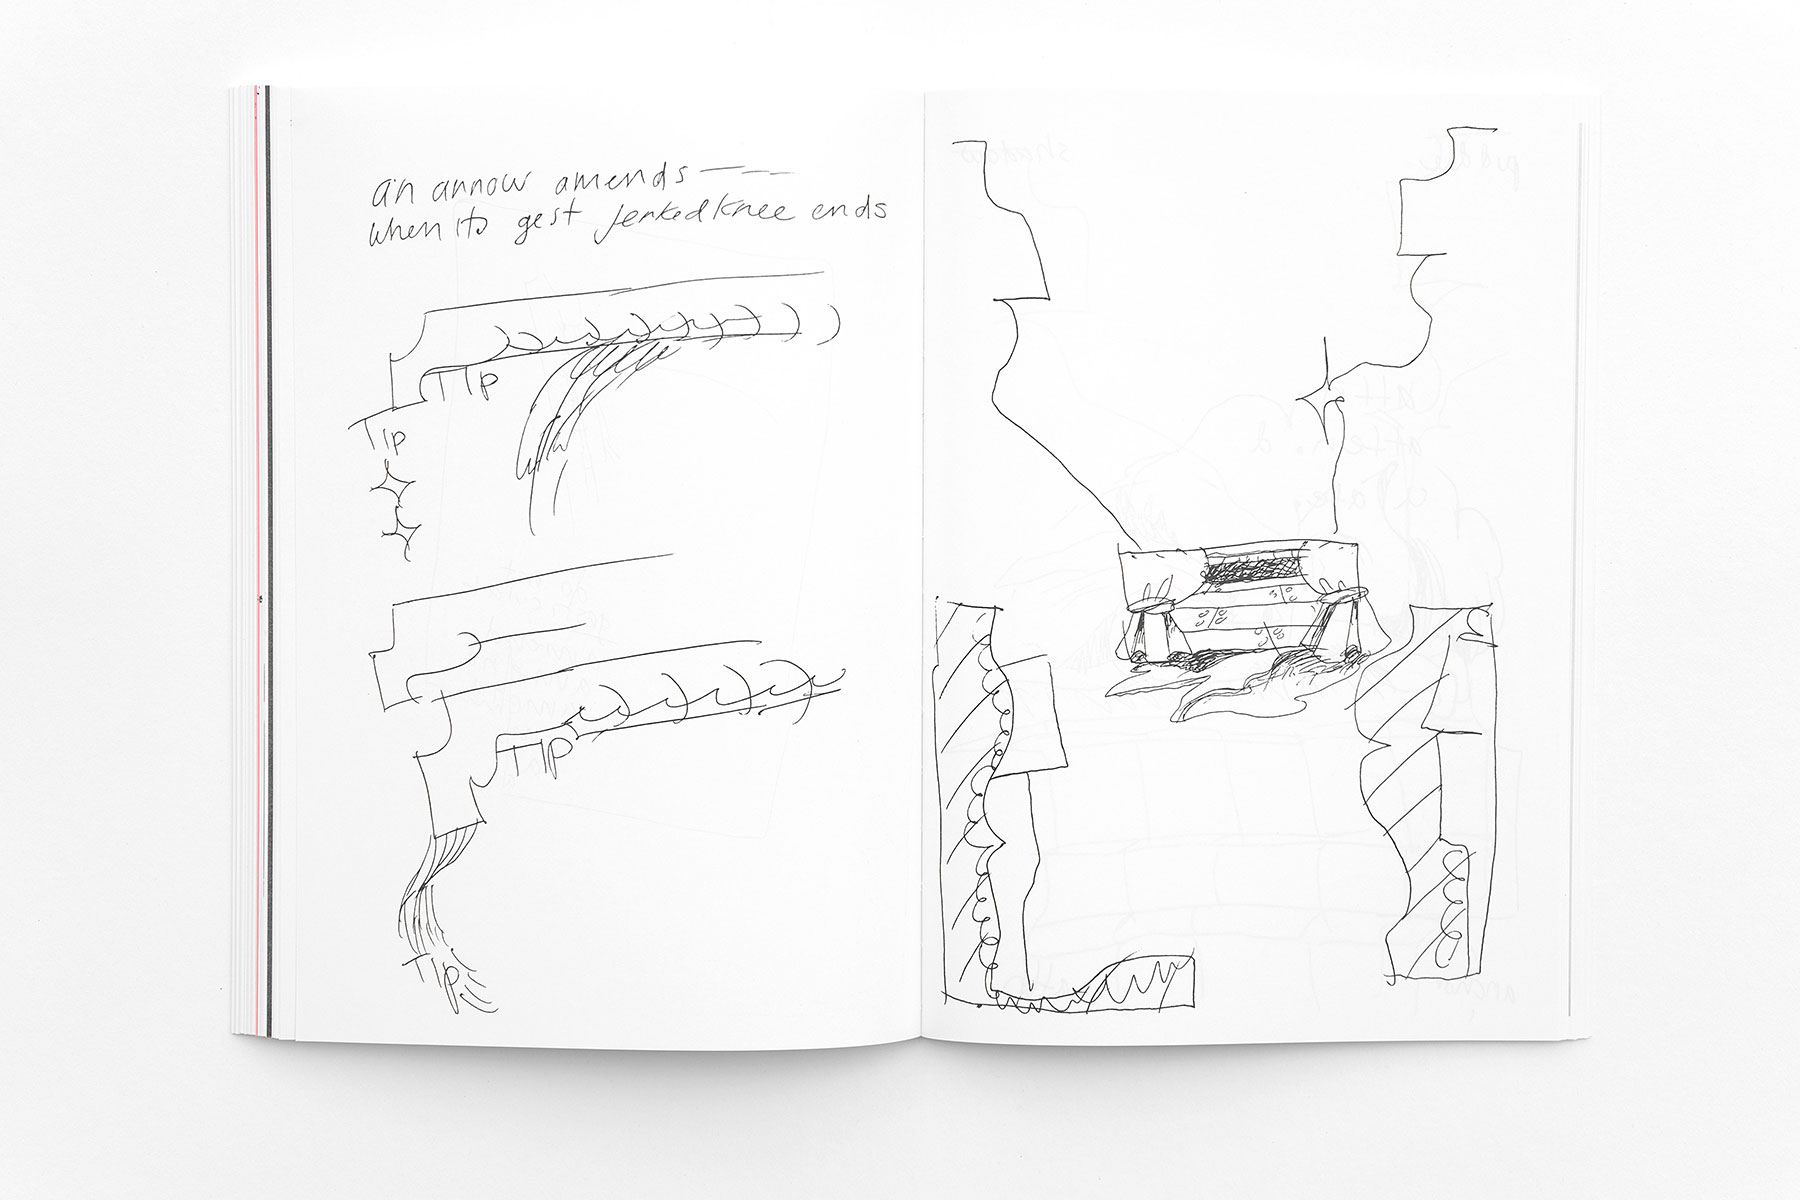 an arrow amends ———
when its gest jerked knee ends
TIp
TIp
TIP
TIp